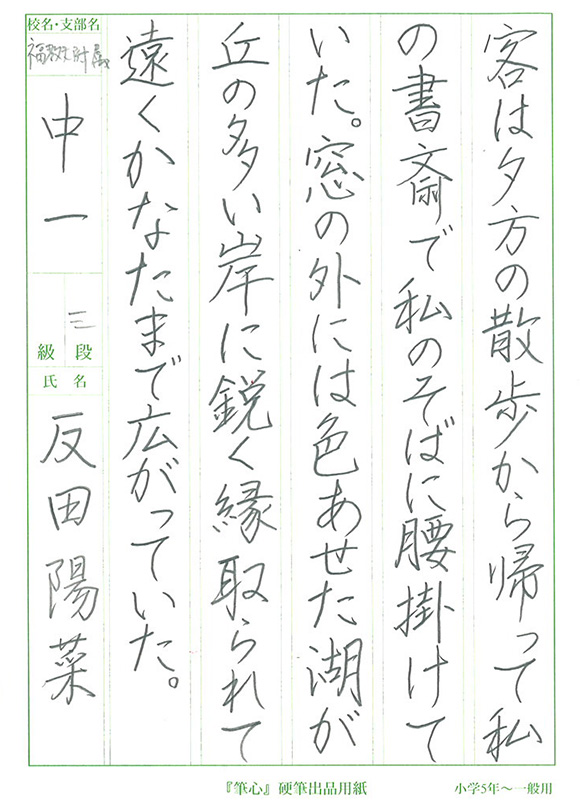 客は夕方の散歩から帰って私
の書斎で私のそばに腰掛けて
いた。窓の外には色あせた湖が
丘の多い岸に鋭く縁取られて
遠くかなたまで広がっていた。
校名・支部名
福教大附属
中一
三
級 段
氏 名
反田陽菜
『筆心』硬筆出品用紙
小学5年〜一般用